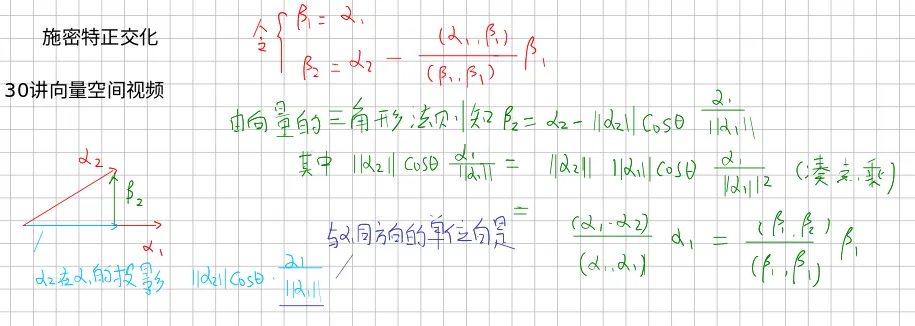 施密特正交化
30讲向量空间视频
令 { β₁ = α₁
β₂ = α₂ - (α₁, β₁)/(β₁, β₁) β₁
由向量的三角形法则知 β₂ = α₂ - ||α₂|| cosθ α₁/||α₁||
其中 ||α₂|| cosθ α₁/||α₁|| = ||α₂|| ||α₁|| cosθ α₁/||α₁||² (凑点乘)
= (α₁·α₂)/(α₁,α₁) α₁ = (β₁,β₂)/(β₁,β₁) β₁
与α₁同方向的单位向量
α₂
β₂
α₁
α₂在α₁的投影 ||α₂|| cosθ · α₁/||α₁||